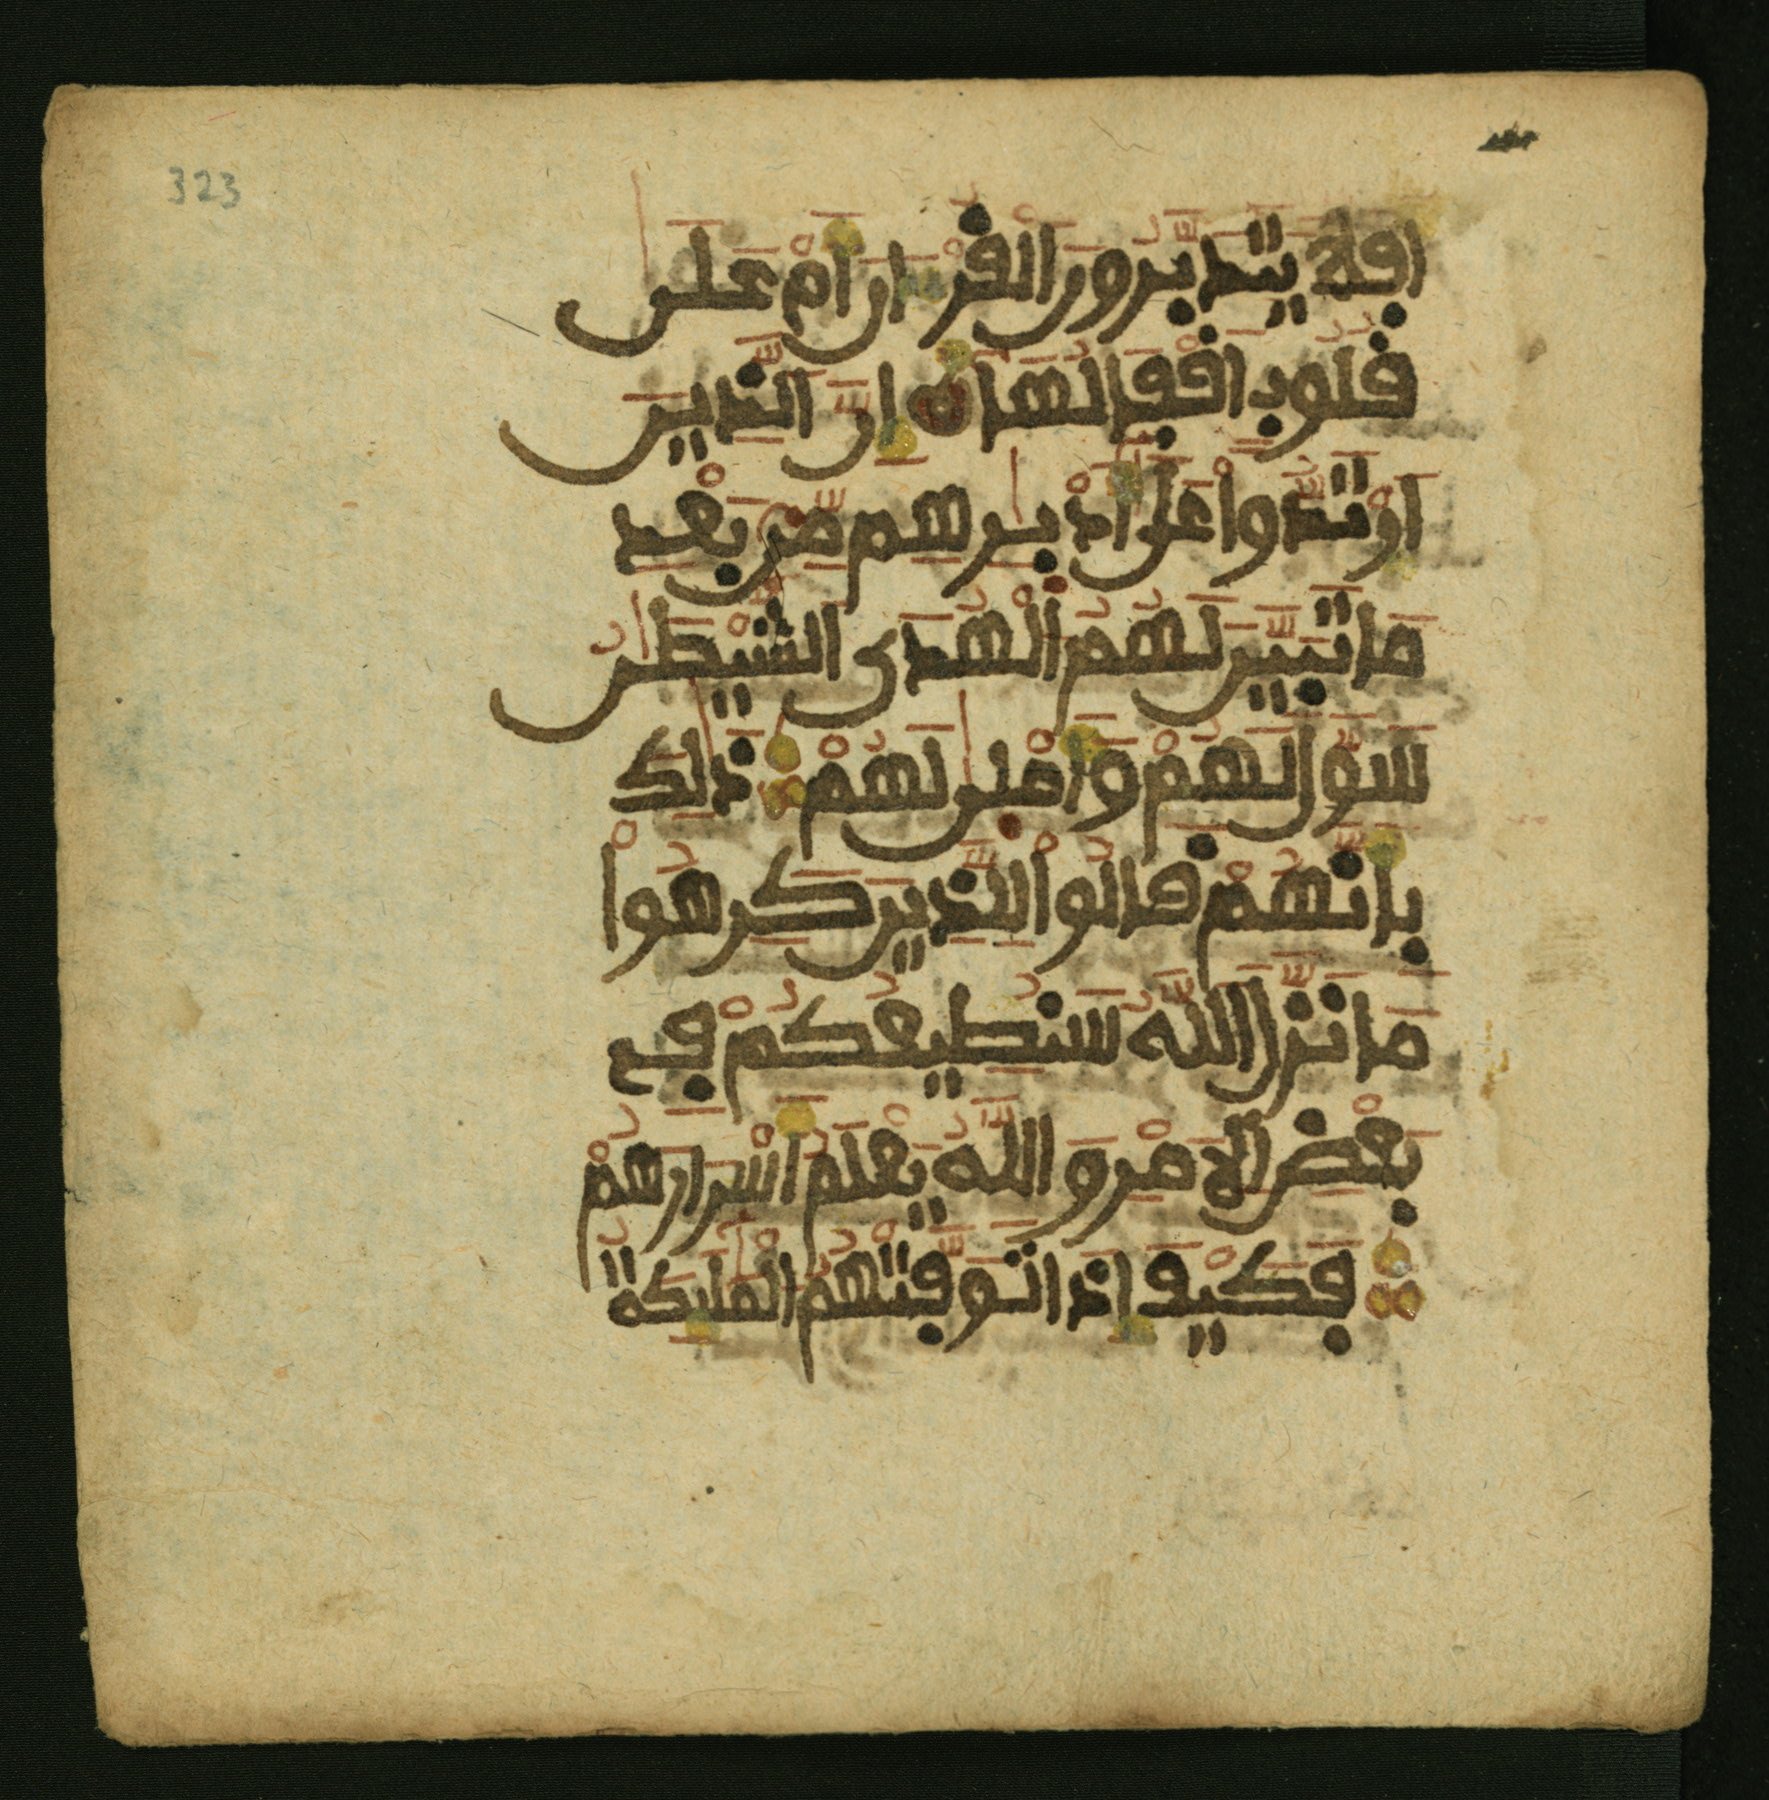 323
افلا يتدبرون القرءان أم على
قلوب اقفالها ان الذين
ارتدوا على أدبرهم من بعد
ما تبين لهم الهدى الشيطن
سول لهم وأملى لهم ذلك
بأنهم قالوا للذين كرهوا
ما نزل الله سنطيعكم في
بعض الامر والله يعلم أسرارهم
فكيف إذا توفتهم الملئكة